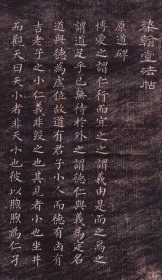 染翰堂法帖
原道碑
博愛之謂仁行而宜之之謂義由是而之焉之
謂道足乎已無待於外之謂德仁與義為定名
道與德為虛位故道有君子小人而德有凶有
吉老子之小仁義非毀之也其見者小也坐井
而觀天曰天小者非天小也彼以煦煦為仁孑